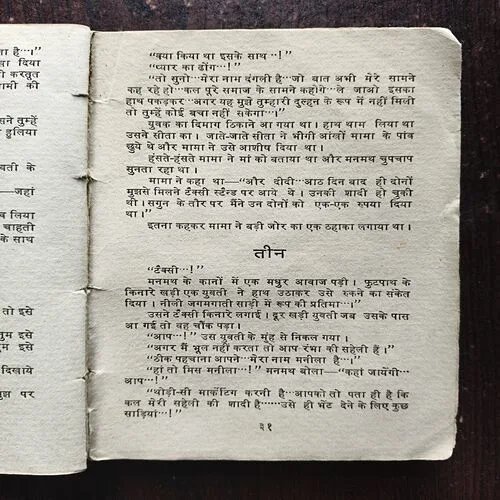 ता है...।"
ला दिया
करतूत
ामी की
सने तुम्हें
हुलिया
वती के
—जहां
व लिया
चाहती
के साथ
तो इसे
तुम इसे
इसे
दिखाये
मुझ पर
"क्या किया था इसके साथ...!"
"प्यार का ढोंग...!"
"तो सुनो...मेरा नाम दंगली है...जो बात अभी मेरे सामने
कह रहे हो...कल पूरे समाज के सामने कहोगे...ले जाओ इसका
हाथ पकड़कर...अगर यह मुझे तुम्हारी दुल्हन के रूप में नहीं मिली
तो तुम्हें कोई बचा नहीं सकेगा...।"
युवक का दिमाग ठिकाने आ गया था। हाथ थाम लिया था
उसने सीता का। जाते-जाते सीता ने भीगी आंखों मामा के पांव
छुये थे और मामा ने उसे आशीष दिया था।
हंसते-हंसते मामा ने मां को बताया था और मनमथ चुपचाप
सुनता रहा था।
मामा ने कहा था—"और दीदी...आठ दिन बाद ही दोनों
मुझसे मिलने टैक्सी स्टैन्ड पर आये थे। उनकी शादी हो चुकी
थी। सगुन के तौर पर मैंने उन दोनों को एक-एक रुपया दिया
था।"
इतना कहकर मामा ने बड़ी जोर का एक ठहाका लगाया था।
तीन
"टैक्सी...!"
मनमथ के कानों में एक मधुर आवाज पड़ी। फुटपाथ के
किनारे खड़ी एक युवती ने हाथ उठाकर उसे रुकने का संकेत
दिया। नीली जगमगाती साड़ी में रूप की प्रतिमा...।
उसने टैक्सी किनारे लगाई। दूर खड़ी युवती जब उसके पास
आ गई तो वह चौंक पड़ा।
"आप...!" उस युवती के मुंह से निकल गया।
"अगर मैं भूल नहीं करता तो आप रंभा की सहेली हैं।"
"ठीक पहचाना आपने...मेरा नाम मनीला है...।"
"हां तो मिस मनीला...!" मनमथ बोला—"कहां जायेंगी...
आप...!"
"थोड़ी-सी मार्केटिंग करनी है...आपको तो पता ही है कि
कल मेरी सहेली की शादी है......उसे ही भेंट देने के लिए कुछ
साड़ियां...!"
३१